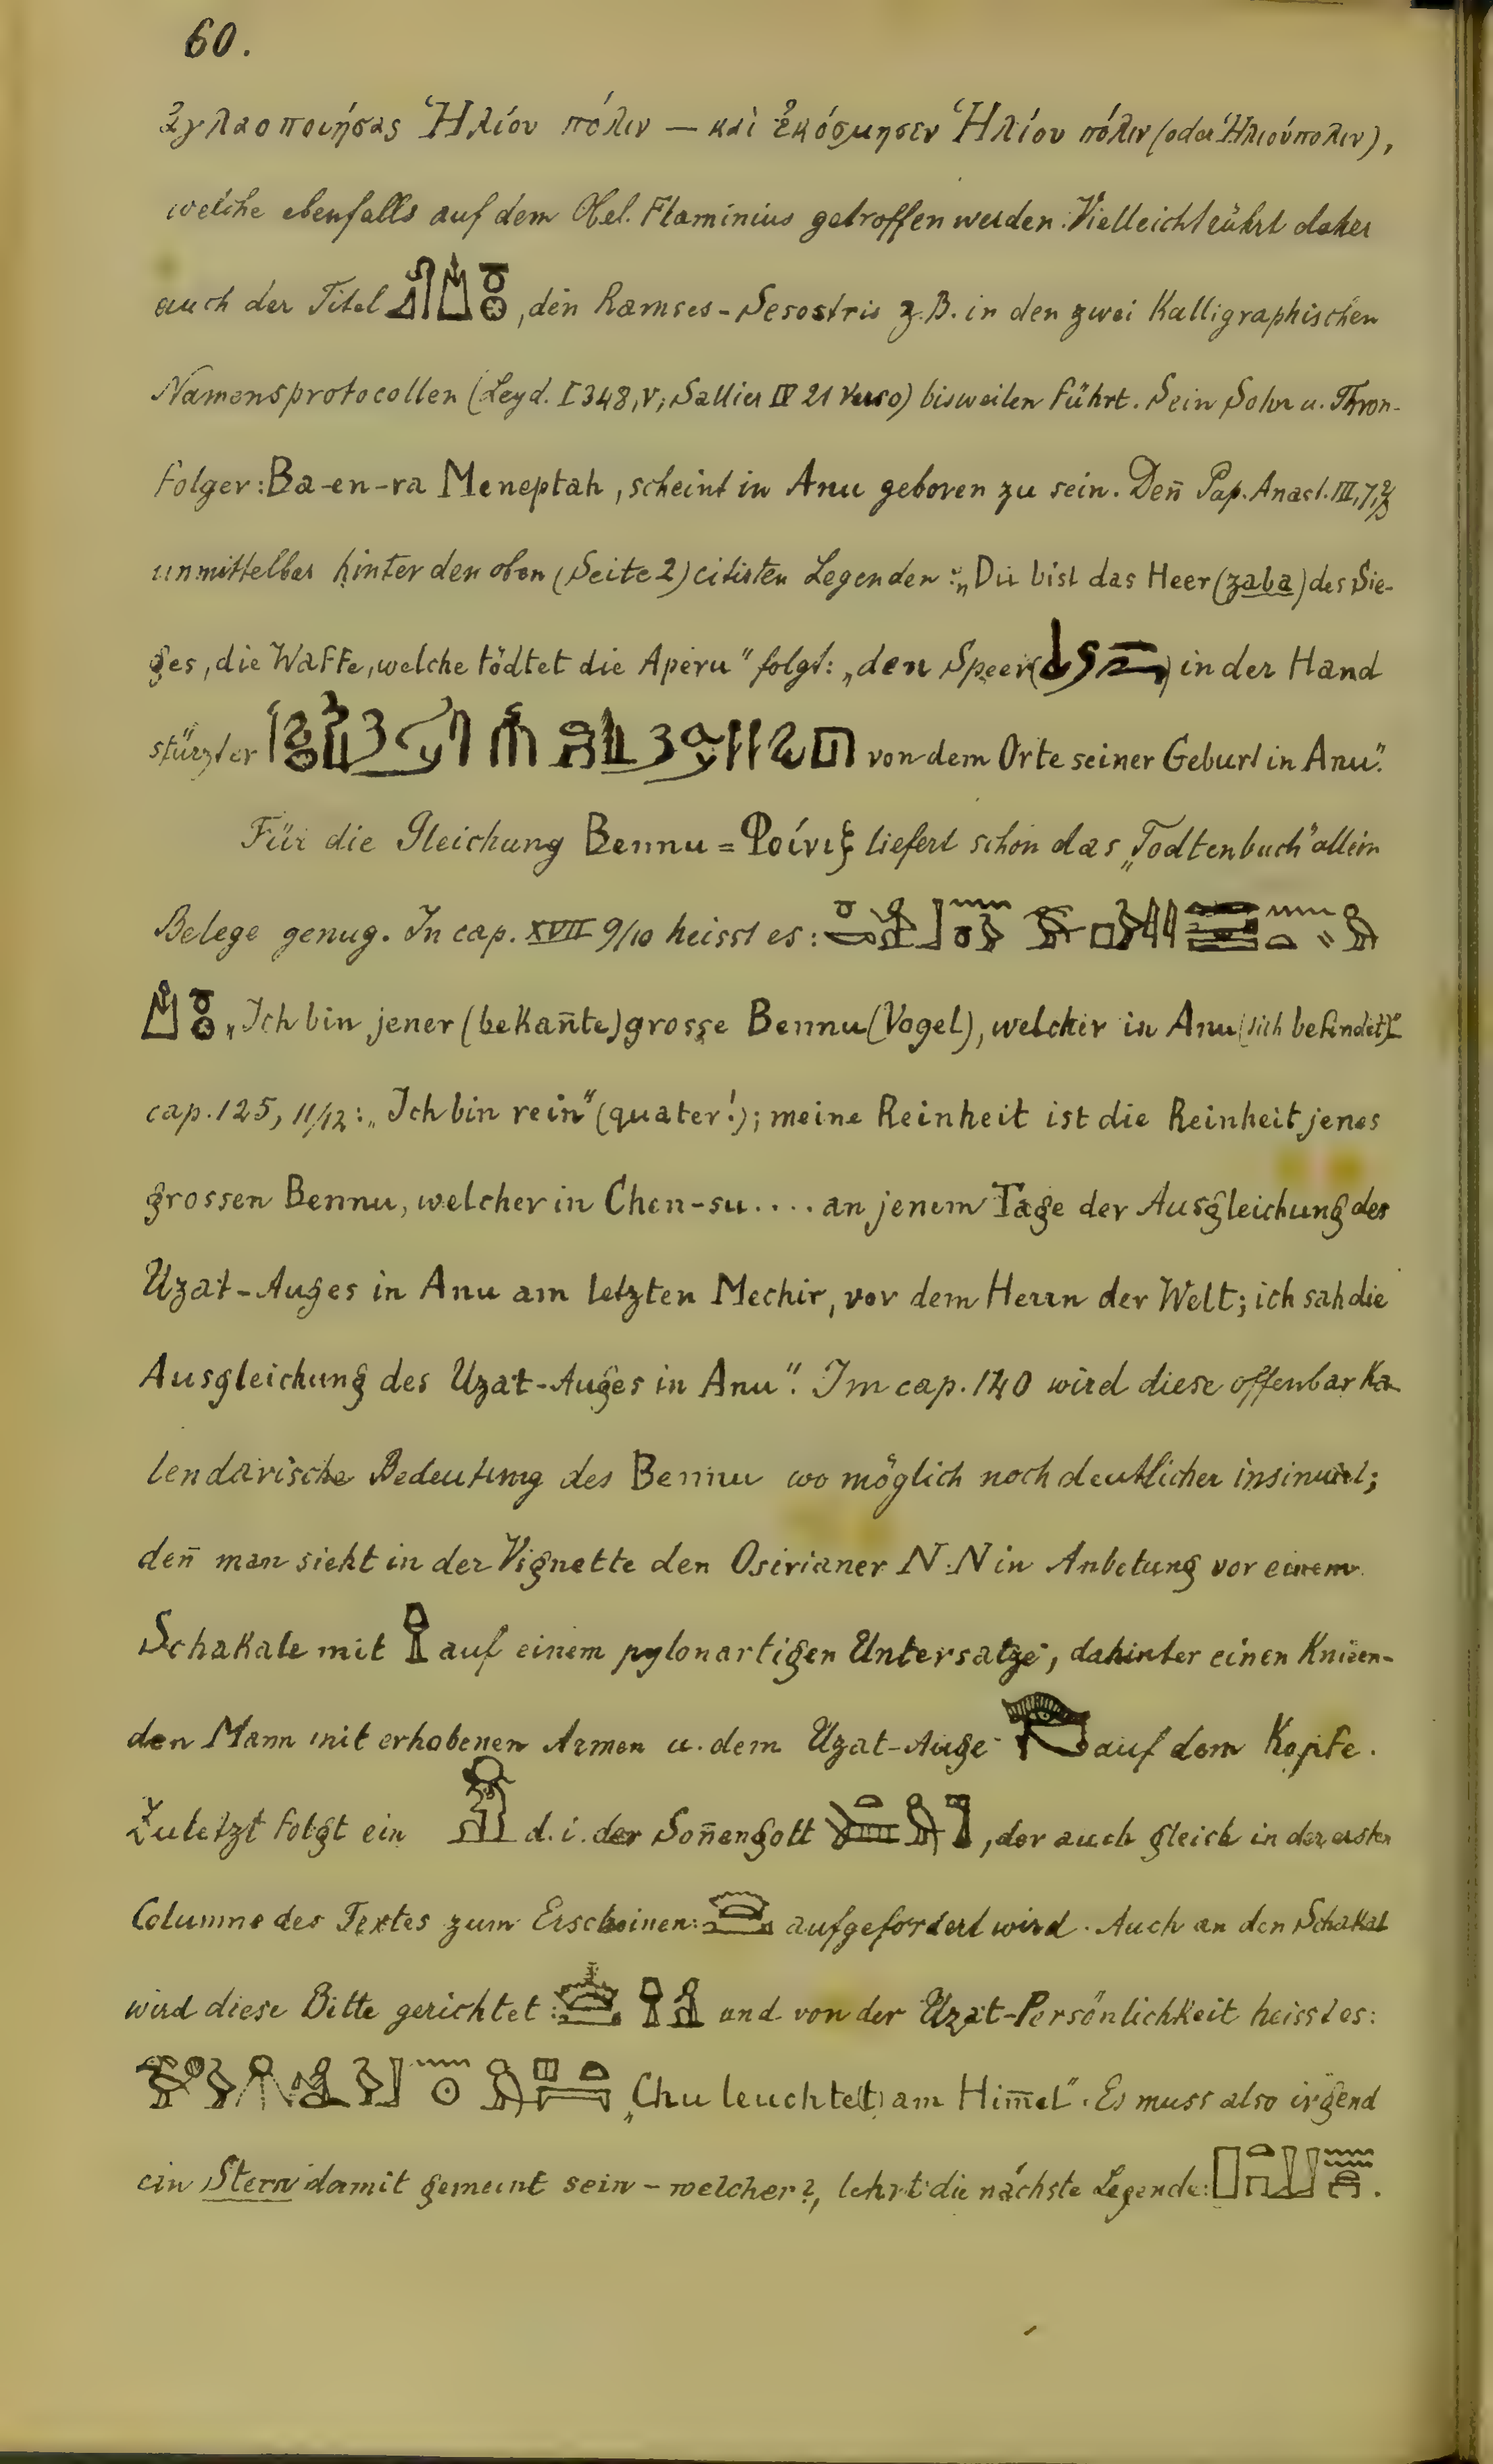 60.
ἀγλαοποιήσας Ἡλίου πόλιν — καὶ ἐκόσμησεν Ἡλίου πόλιν (oder Ἡλιούπολιν),
welche ebenfalls auf dem Obel. Flaminius getroffen werden. Vielleicht rührt daher
auch der Titel , den Ramses-Sesostris z.B. in den zwei Kalligraphischen
Namensprotocollen (Leyd. I 348, V; Sallier IV 21 Verso) bisweilen führt. Sein Sohn u. Thron-
folger: Ba-en-ra Meneptah, scheint in Anu geboren zu sein. Den̄ Pap. Anast. III, 7,
unmittelbar hinter den oben (Seite 2) citirten Legenden: „Du bist das Heer (zaba) des Sie-
ges, die Waffe, welche tödtet die Aperu" folgt: „den Speer () in der Hand
stürzt er von dem Orte seiner Geburt in Anu".
Für die Gleichung Bennu = Φοίνιξ liefert schon das „Todtenbuch" allein
Belege genug. In cap. XVII 9/10 heisst es:
„Ich bin jener (bekan̄te) grosse Bennu (Vogel), welcher in Anu (sich befindet)"
cap. 125, 11/12: „Ich bin rein" (quater!); meine Reinheit ist die Reinheit jenes
grossen Bennu, welcher in Chen-su .... an jenem Tage der Ausgleichung des
Uzat-Auges in Anu am letzten Mechir, vor dem Herrn der Welt; ich sah die
Ausgleichung des Uzat-Auges in Anu". Im cap. 140 wird diese offenbar Ka-
lendarische Bedeutung des Bennu wo möglich noch deutlicher insinuirt;
den̄ man sieht in der Vignette den Osirianer N.N in Anbetung vor einem
Schakale mit auf einem pylonartigen Untersatze, dahinter einen Knieen-
den Mann mit erhobenen Armen u. dem Uzat-Auge auf dem Kopfe.
Zuletzt folgt ein d.i. der Son̄engott , der auch gleich in der ersten
Columne des Textes zum Erscheinen: aufgefordert wird. Auch an den Schakal
wird diese Bitte gerichtet: und von der Uzat-Persönlichkeit heisst es:
„Chu leuchte(t) am Him̄el". Es muss also irgend
ein Stern damit gemeint sein – welcher?, lehrt die nächste Legende: .